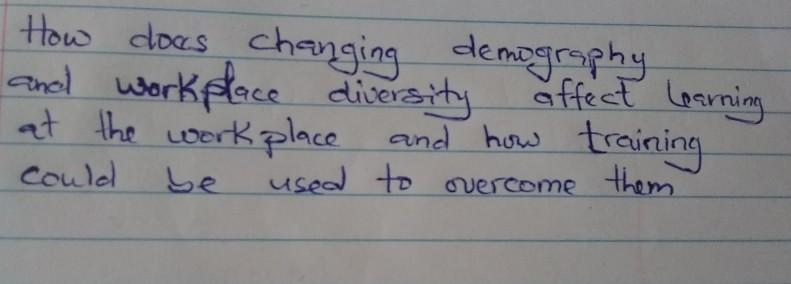 How does changing demography
and workplace diversity affect learning
at the workplace and how training
could be used to overcome them